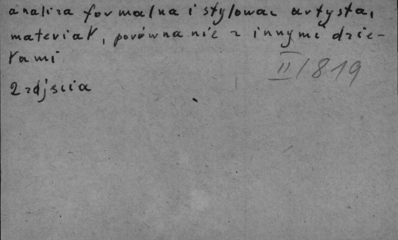 analiza formalna i stylowa: artysta,
materiał, porównanie z innymi dzie-
łami
II/819
2 zdjęcia